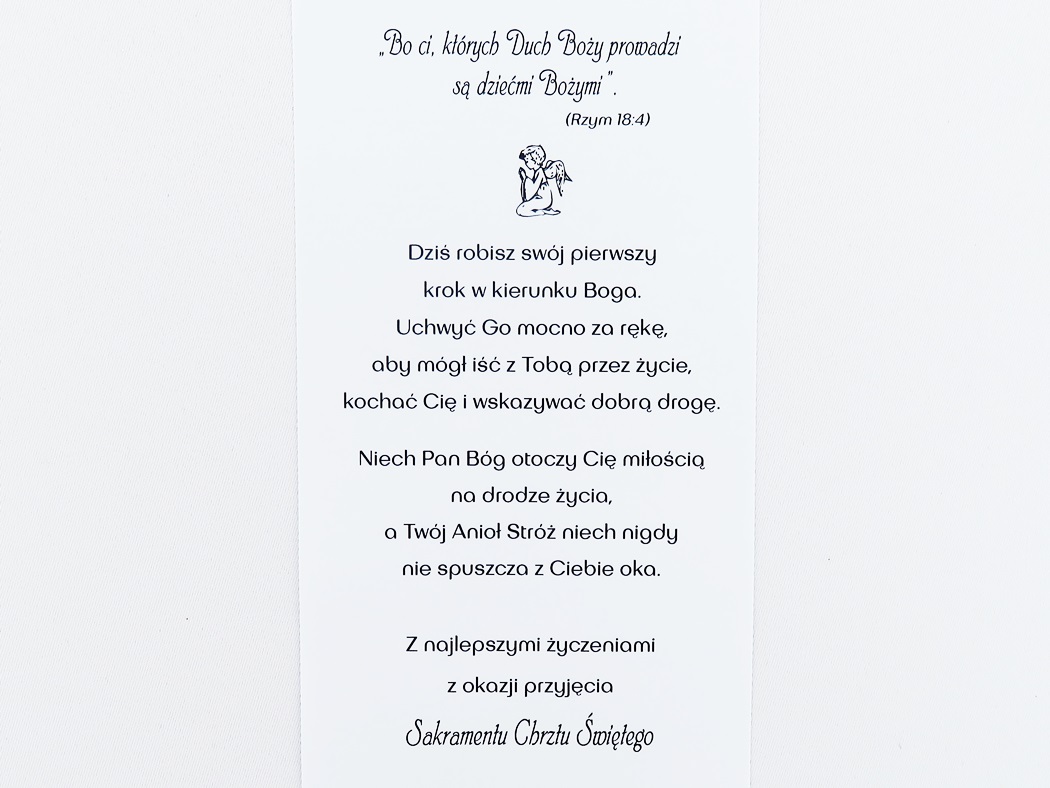 „Bo ci, których Duch Boży prowadzi
są dziećmi Bożymi ”.
(Rzym 18:4)
Dziś robisz swój pierwszy
krok w kierunku Boga.
Uchwyć Go mocno za rękę,
aby mógł iść z Tobą przez życie,
kochać Cię i wskazywać dobrą drogę.
Niech Pan Bóg otoczy Cię miłością
na drodze życia,
a Twój Anioł Stróż niech nigdy
nie spuszcza z Ciebie oka.
Z najlepszymi życzeniami
z okazji przyjęcia
Sakramentu Chrztu Świętego